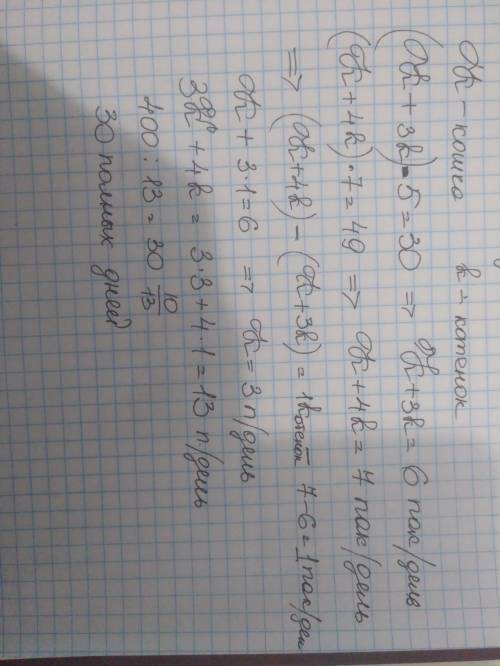 К - кошка    к - котенок
(К + 3к) · 5 = 30 => К + 3к = 6 пак/день
(К + 4к) · 7 = 49 => К + 4к = 7 пак/день
=> (К + 4к) - (К + 3к) = 1котенок = 7-6 = 1пас/ден
К + 3·1 = 6 => К = 3 п/день
3К + 4к = 3·3 + 4·1 = 13 п/день
400 : 13 = 30 10/13
30 полных дней